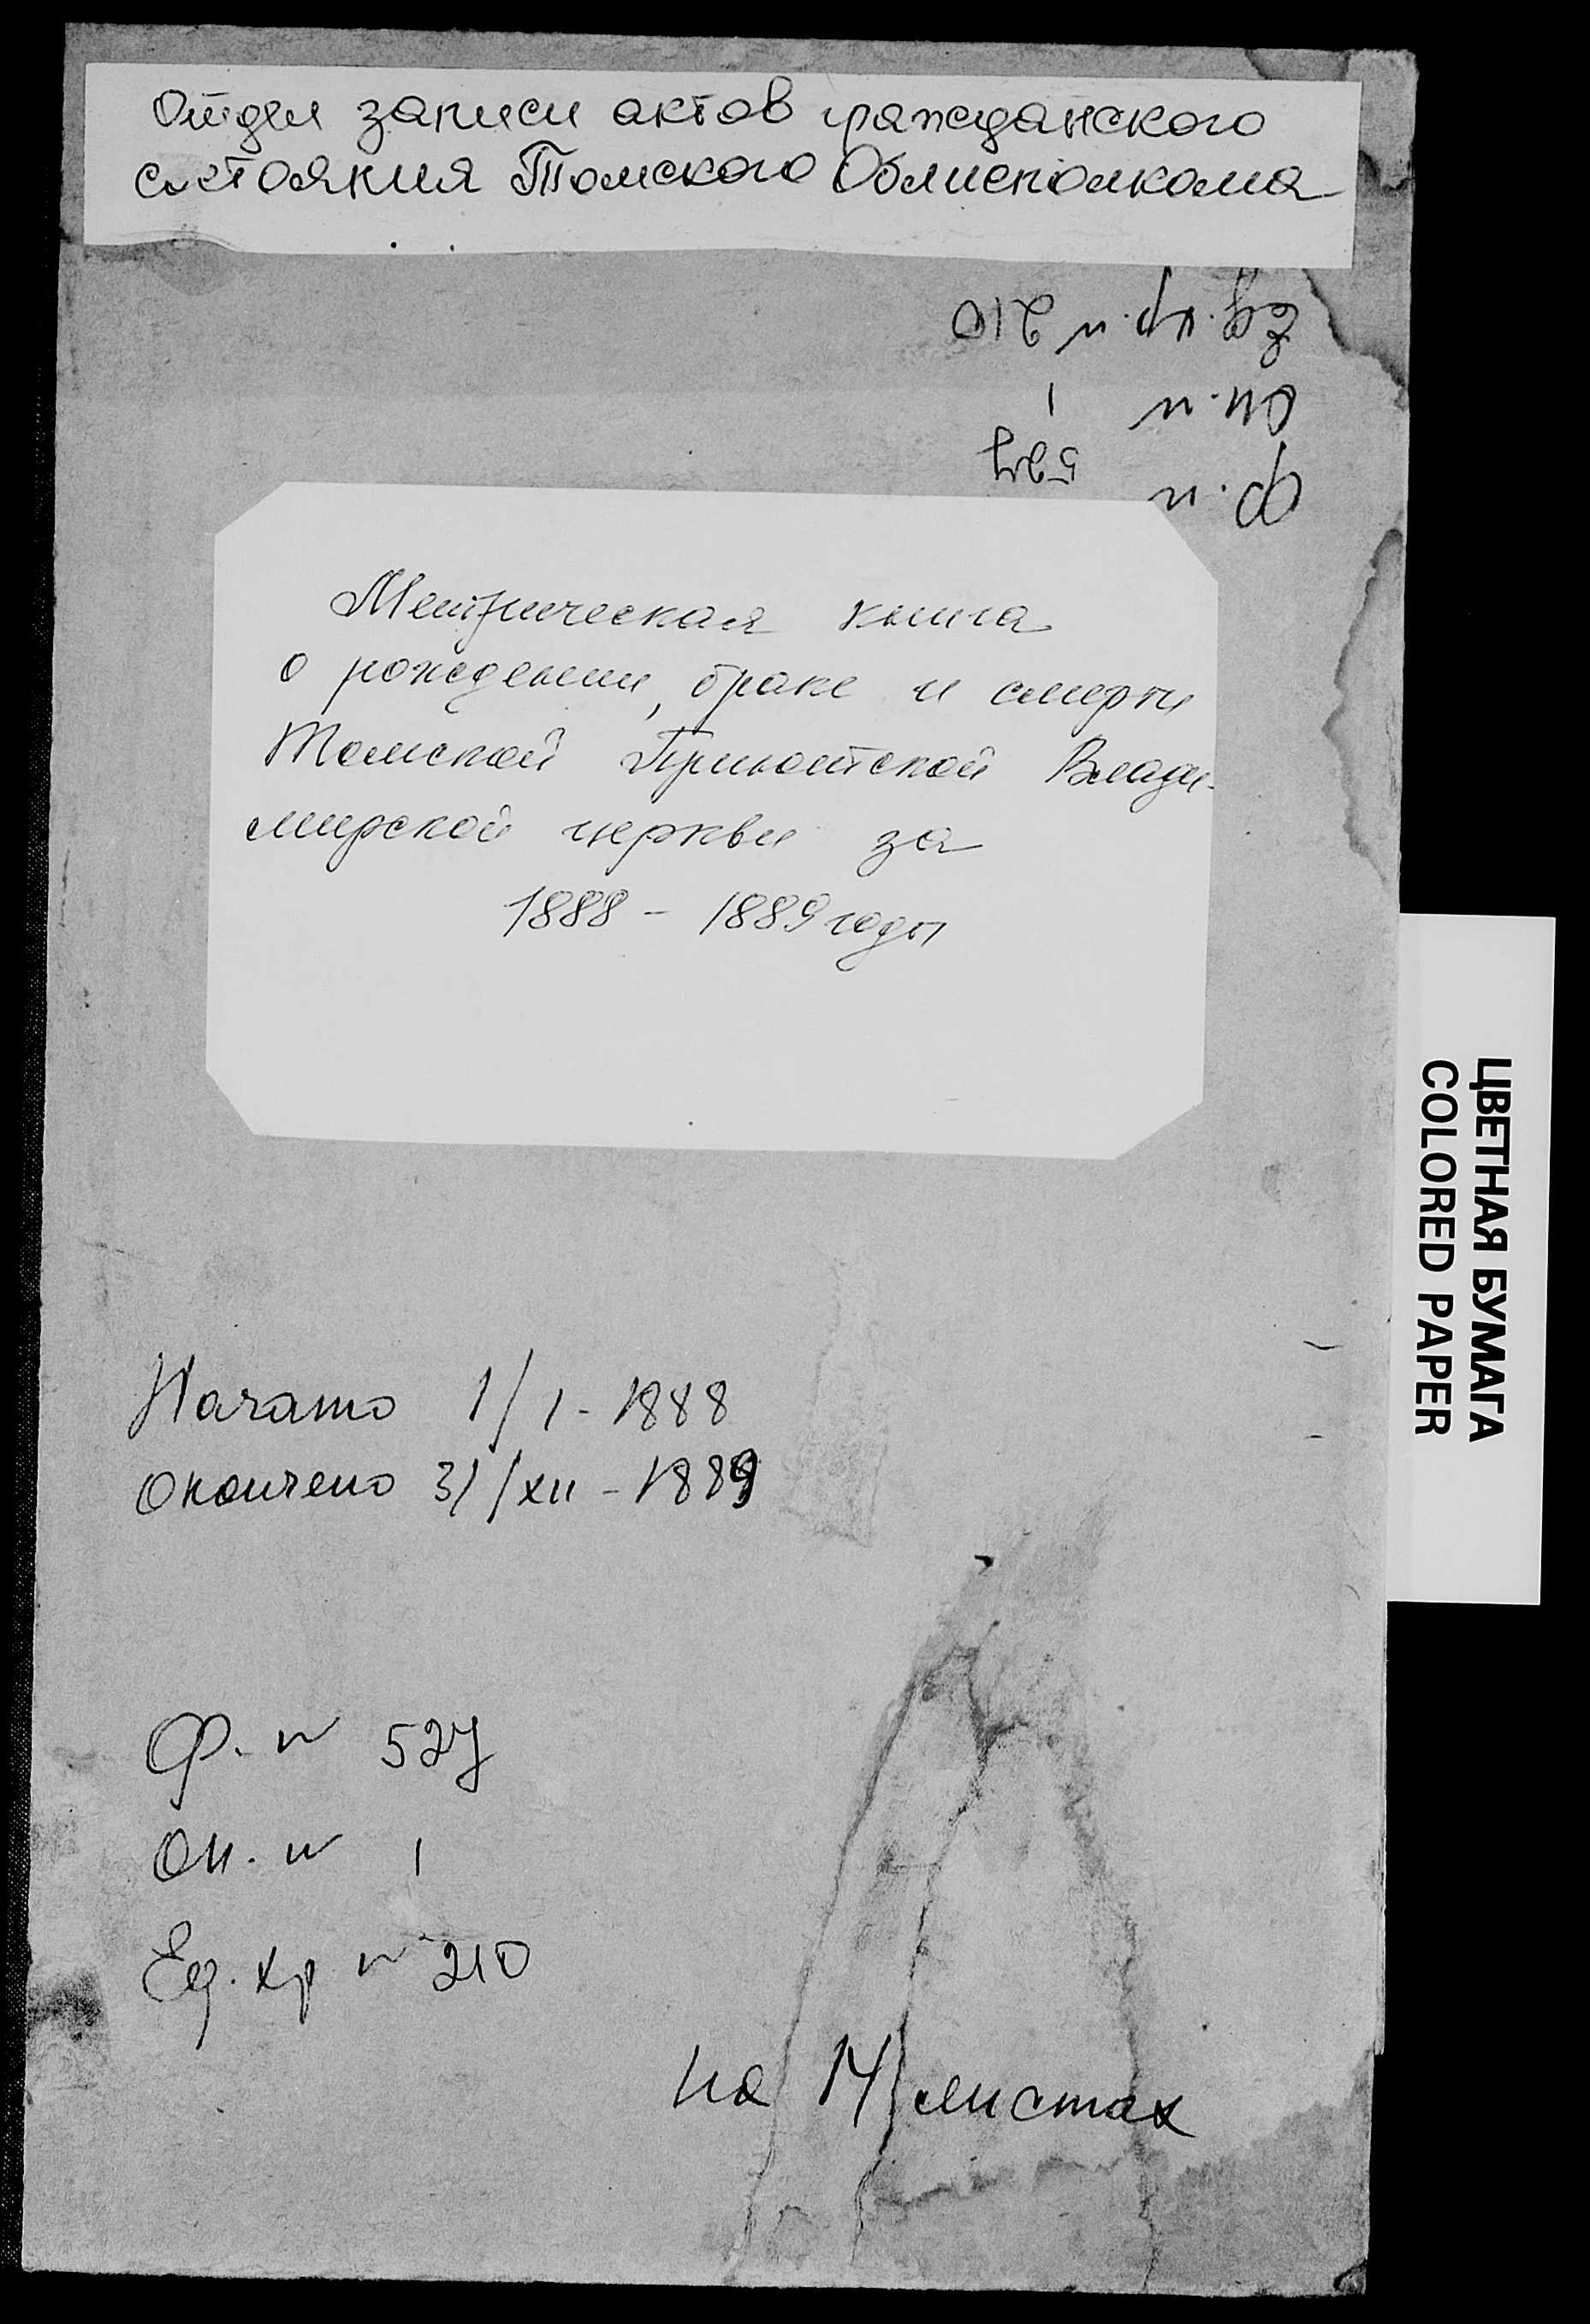 Отдел записи актов гражданского
состояния Томского Облисполкома
Ед. хр. № 210
Оп. № 1
Ф. № 527
Метрическая книга
о рождении, браке и смерти
Томской Приютской Влади-
мирской церкви за
1888 - 1889 годы
Начато 1/I - 1888
Окончено 31/XII - 1889
Ф. № 527
Оп. № 1
Ед. хр № 210
на 14 листах
ЦВЕТНАЯ БУМАГА
COLORED PAPER